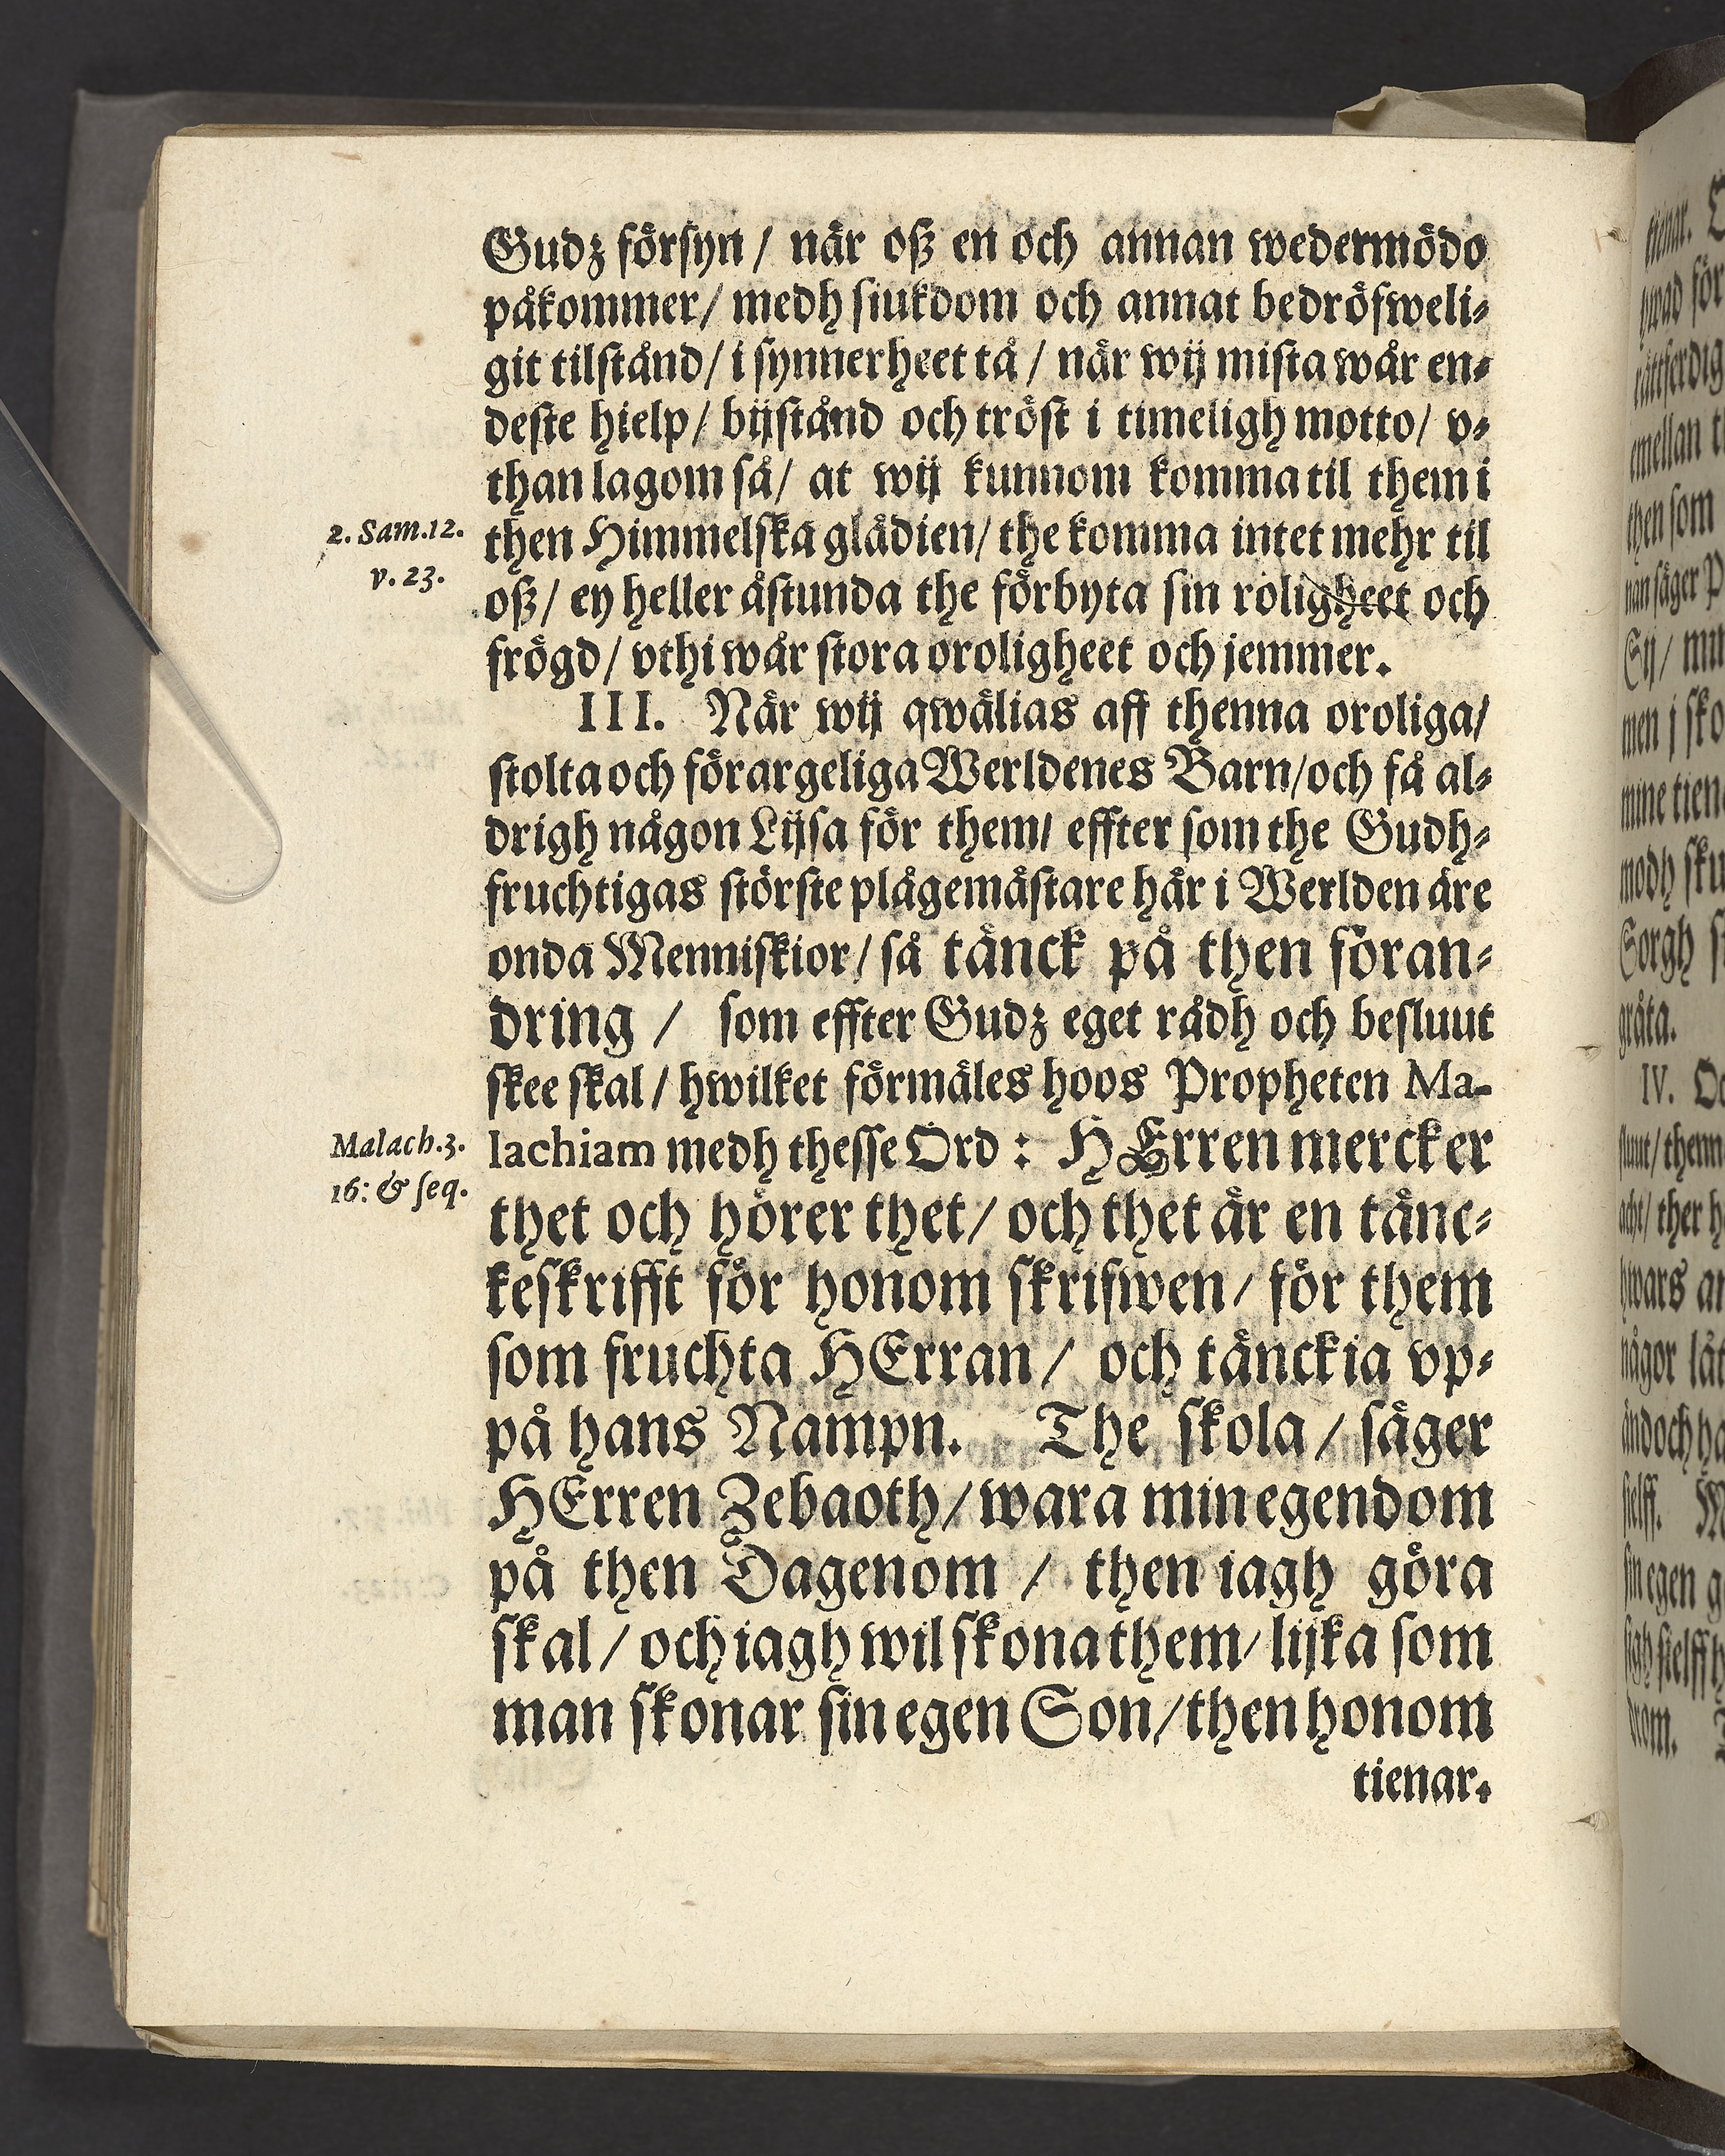 Gudz försyn / när oß en och annan wedermödo
påkommer / medh siukdom och annat bedröfweli-
git tilstånd / i synnerheet tå / när wij mista wår en-
deste hielp / bijstånd och tröst i timeligh motto / v-
than lagom så / at wij kunnom komma til them i
2. Sam. 12. v. 23.
then Himmelska glädien / the komma intet mehr til
oß / ey heller åstunda the förbyta sin roligheet och
frögd / vthi wår stora oroligheet och jemmer.
III. När wij qwälias aff thenna oroliga /
stolta och förargeliga Werldenes Barn / och få al-
drigh någon Lijsa för them / effter som the Gudh-
fruchtigas störste plågemästare här i Werlden äre
onda Menniskior / så tänck på then föran-
dring / som effter Gudz eget rådh och besluut
skee skal / hwilket förmäles hoos Propheten Ma-
Malach. 3. 16: & seq.
lachiam medh thesse Ord : HErren mercker
thet och hörer thet / och thet är en tänc-
keskrifft för honom skrifwen / för them
som fruchta HErran / och tänckia vp-
på hans Nampn. The skola / säger
HErren Zebaoth / wara min egendom
på then Dagenom / then iagh göra
skal / och iagh wil skona them / lijka som
man skonar sin egen Son / then honom
tienar.